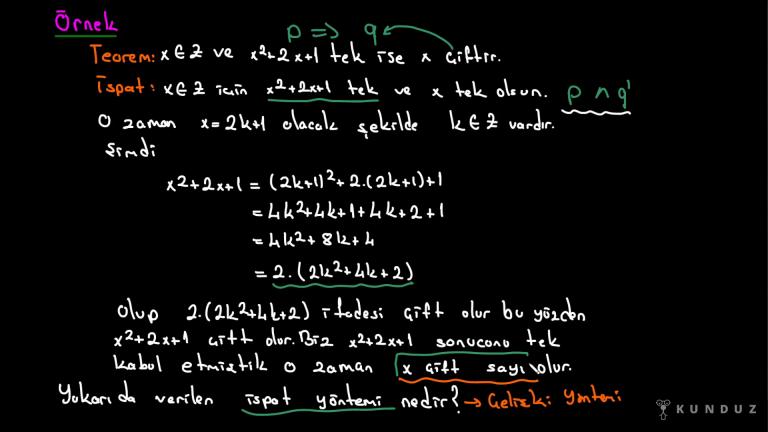 Örnek
p => q
Teorem: x ∈ Z ve x²+2x+1 tek ise x çifttir.
İspat: x ∈ Z için x²+2x+1 tek ve x tek olsun. p ∧ q'
O zaman x = 2k+1 olacak şekilde k ∈ Z vardır.
Şimdi
x²+2x+1 = (2k+1)²+2.(2k+1)+1
= 4k²+4k+1+4k+2+1
= 4k²+8k+4
= 2.(2k²+4k+2)
olup 2.(2k²+4k+2) ifadesi çift olur bu yüzden
x²+2x+1 çift olur. Biz x²+2x+1 sonucunu tek
kabul etmiştik o zaman x çift sayı olur.
Yukarıda verilen ispat yöntemi nedir? → Çelişki Yöntemi
KUNDUZ